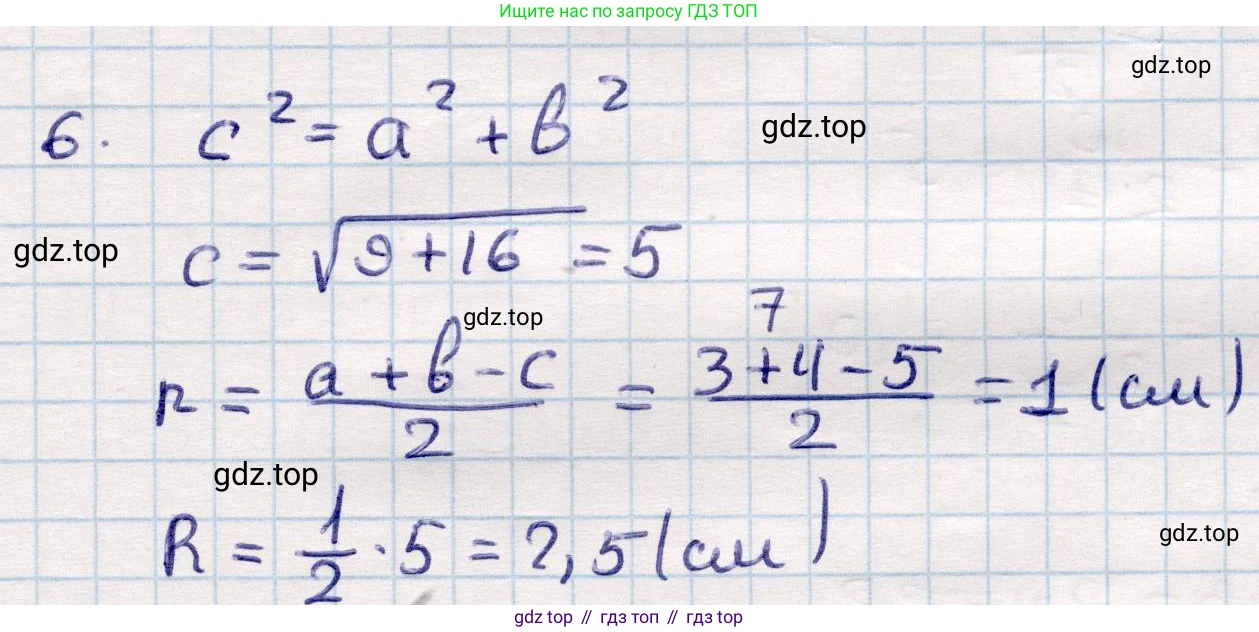 Ищите нас по запросу ГДЗ ТОП
gdz.top
6. c² = a² + b²
gdz.top
gdz.top
c = √(9+16) = 5
gdz.top
7
r = (a + b - c)/2 = (3+4-5)/2 = 1 (см)
gdz.top
R = 1/2 · 5 = 2,5 (см)
gdz.top
gdz top // гдз топ // gdz top